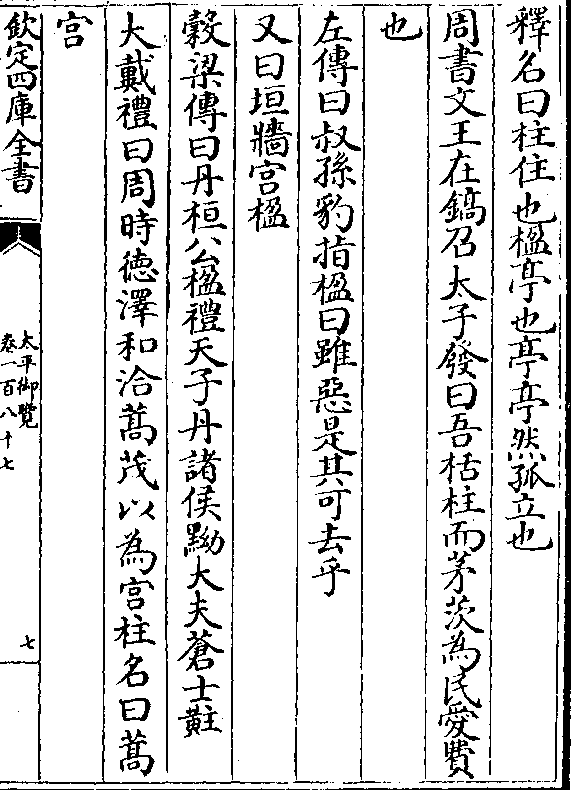 釋名曰柱住也楹亭也亭亭然孤立也
周書文王在鎬召太子發曰吾栝柱而茅茨為民愛費
也
左傳曰叔孫豹指楹曰雖惡是其可去乎
又曰垣牆宫楹
榖梁傳曰丹桓公楹禮天子丹諸侯黝大夫蒼士黈
大戴禮曰周時徳澤和洽蒿茂以為宫柱名曰蒿
宫
欽定四庫全書
太平御覽
卷一百八十七
七